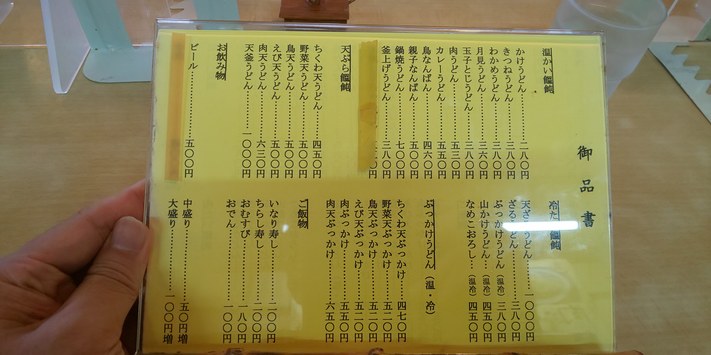 御品書
温かい饂飩
かけうどん……………二八〇円
きつねうどん…………三八〇円
わかめうどん…………三八〇円
月見うどん……………三六〇円
玉子とじうどん………三八〇円
肉うどん………………五三〇円
カレーうどん…………五五〇円
鳥なんばん……………四六〇円
親子なんばん…………五〇〇円
鍋焼うどん……………七〇〇円
釜上げうどん…………三八〇円
天ぷら饂飩
ちくわ天うどん………四五〇円
野菜天うどん…………五〇〇円
鳥天うどん……………五〇〇円
えび天うどん…………五〇〇円
肉天うどん……………六三〇円
天釜うどん……………一〇〇〇円
お飲み物
ビール…………………五〇〇円
冷たい饂飩
天ざるうどん…………一〇〇〇円
ざるうどん……………三八〇円
ぶっかけうどん（温冷）三八〇円
山かけうどん…（温冷）四五〇円
なめこおろし…（温冷）四五〇円
ぶっかけうどん（温・冷）
ちくわ天ぶっかけ……四七〇円
野菜天ぶっかけ………五二〇円
鳥天ぶっかけ…………五二〇円
えび天ぶっかけ………五二〇円
肉ぶっかけ……………五五〇円
肉天ぶっかけ…………六五〇円
ご飯物
いなり寿し……………二〇〇円
ちらし寿し……………二〇〇円
おむすび………………一八〇円
おでん…………………一〇〇円
中盛り…………………五〇円増
大盛り…………………一〇〇円増